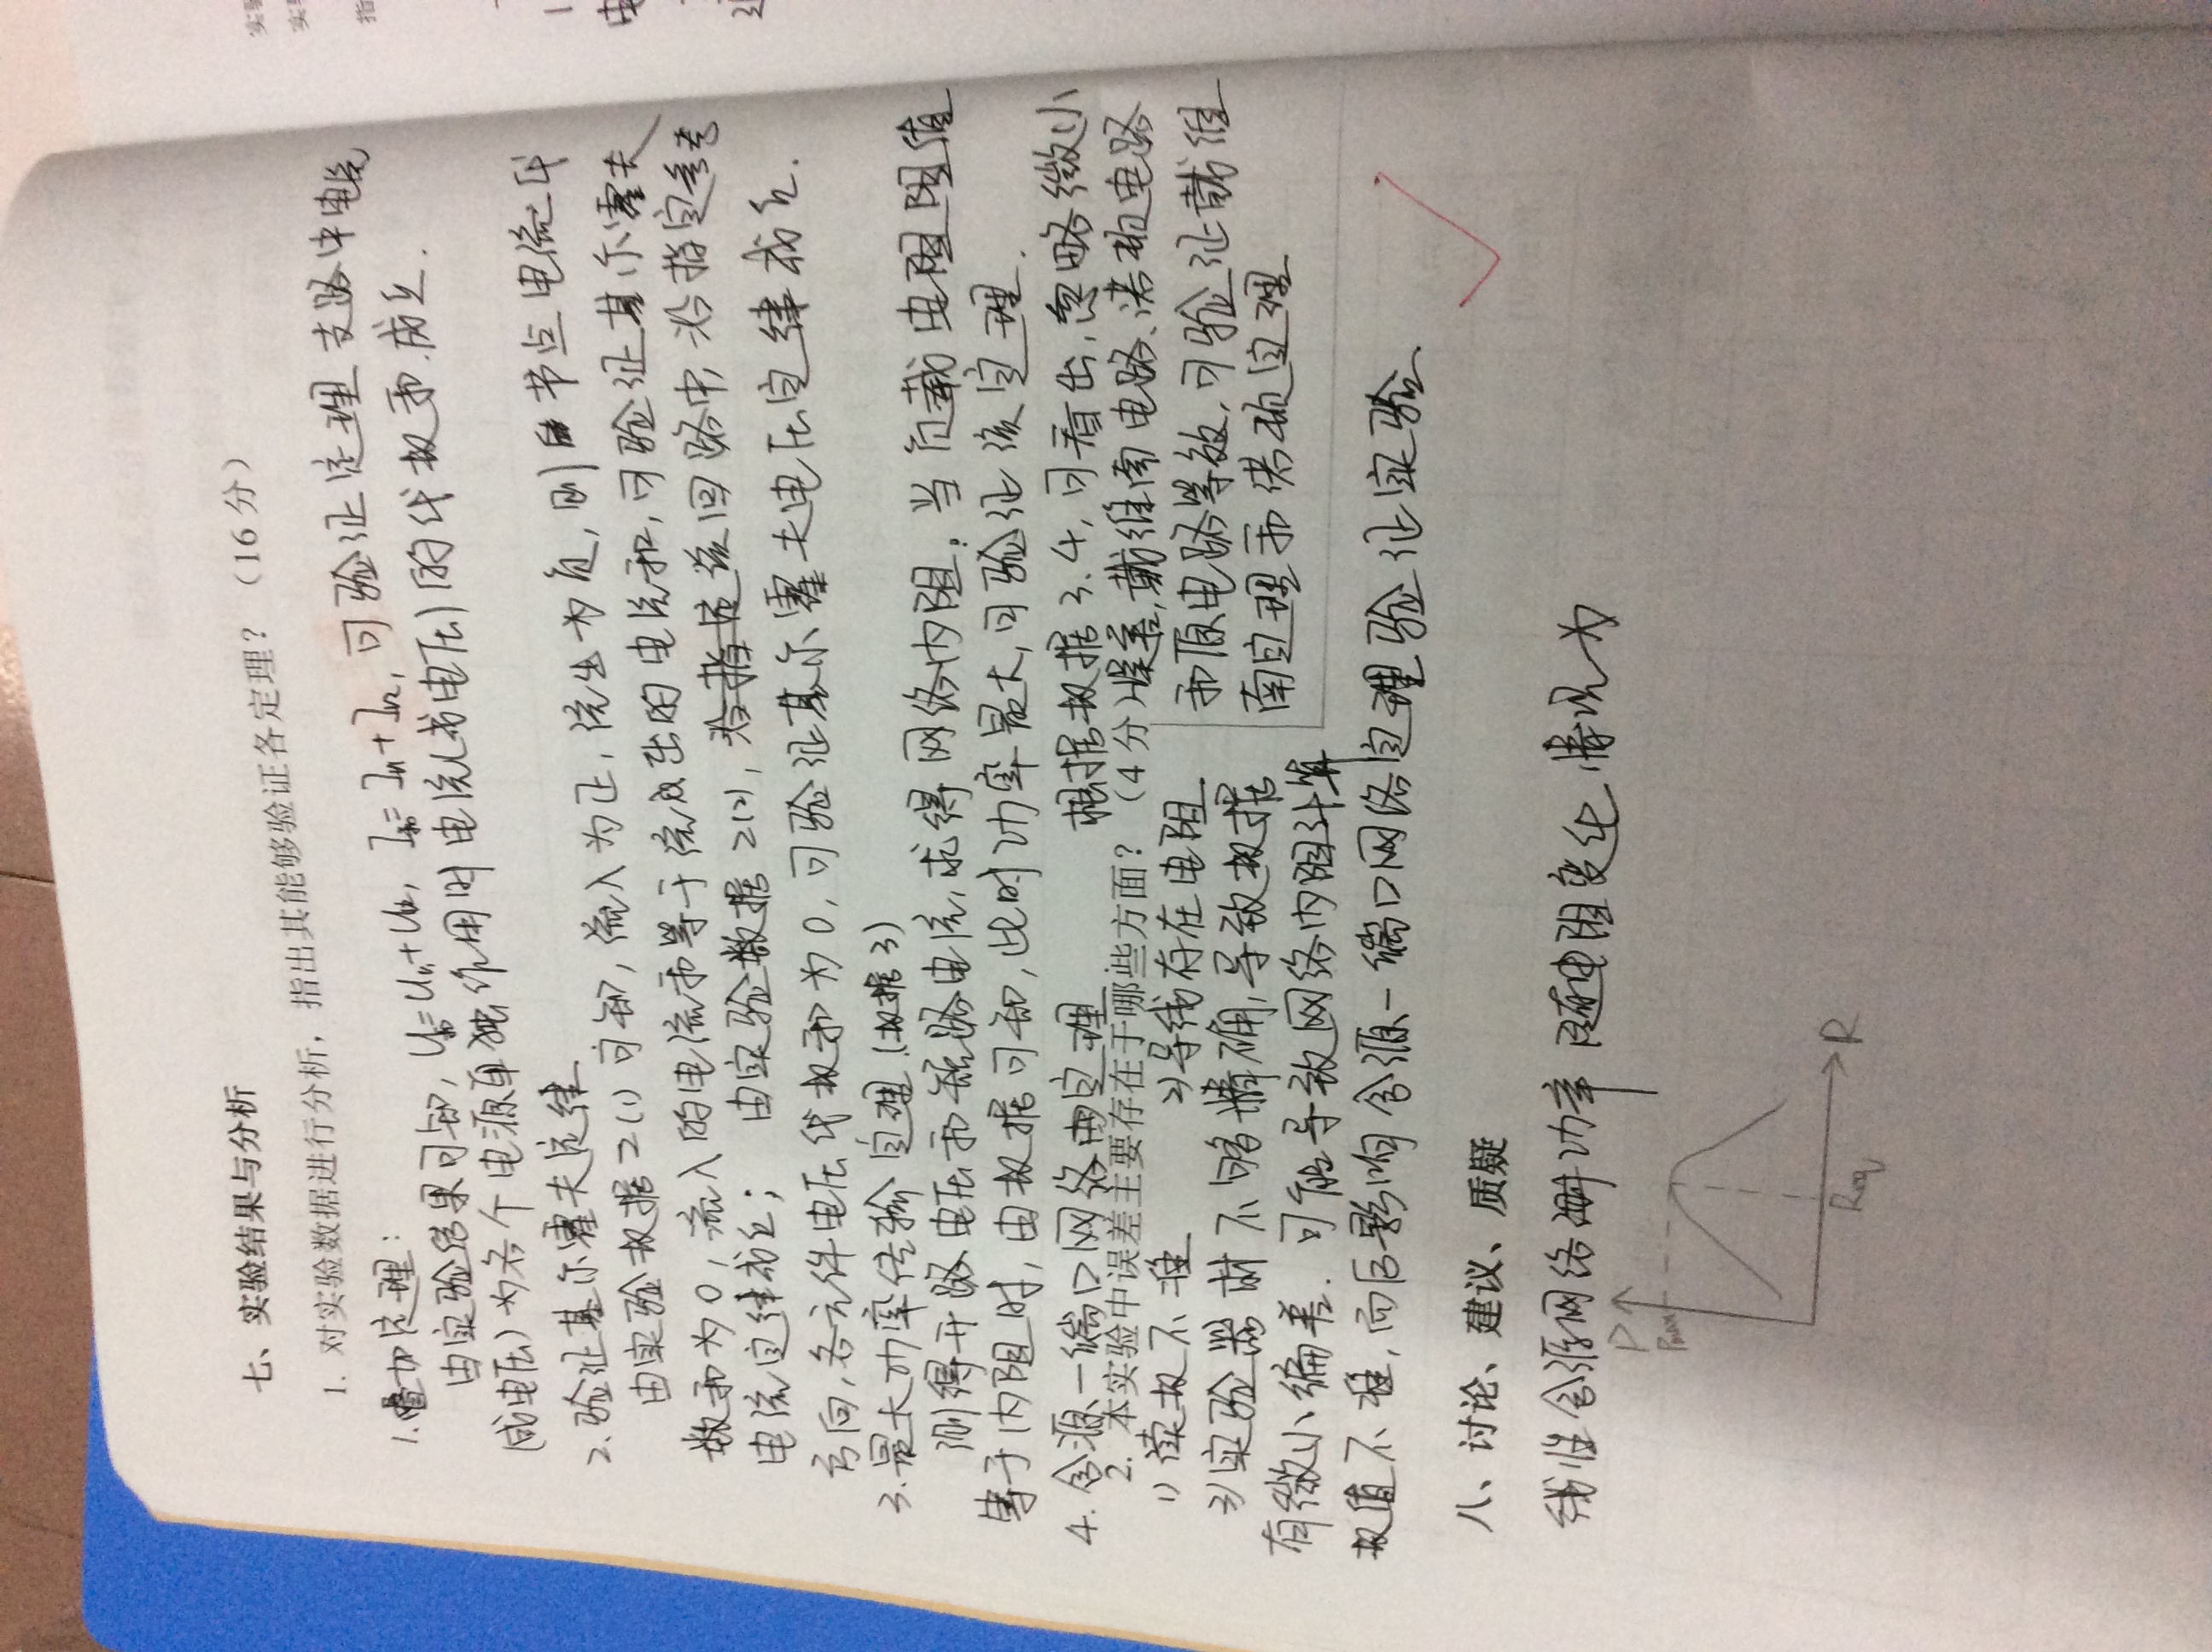 七、实验结果与分析
1. 对实验数据进行分析，指出其能够验证各定理？（16分）
1.叠加定理：
由实验结果可知，U总=U11+U12，I总=I11+I12，可验证定理支路中电流
(或电压)为各个电源单独作用时电流(或电压)的代数和.成立.
2.验证基尔霍夫定律
由实验数据2(1)可知，流入为正，流出为负，则节点电流代
数和为0，流入的电流和等于流出的电流和，可验证基尔霍夫
电流定律成立；由实验数据2(2)，沿指定参考
方向，各元件电压代数和为0，可验证基尔霍夫电压定律成立.
3.最大功率传输定理(数据3)
测得开路电压和短路电流，求得网络内阻；当负载电阻阻值
等于内阻时，由数据可知，此时功率最大，可验证该定理.
4.含源一端口网络定理 根据数据3.4，可看出，忽略微小
误差，戴维南电路、诺顿电路
和原电路等效，可验证戴维
南定理和诺顿定理
2. 本实验中误差主要存在于哪些方面？（4分）
1)读数不准 2)导线存在电阻
3)实验器材不够精确，导致数据
有微小偏差.可能导致网络内阻计算
数值不准，而后影响含源一端口网络定理验证实验.
八、讨论、建议、质疑
线性含源网络功率随电阻变化情况为
P
Pmax
Req
R